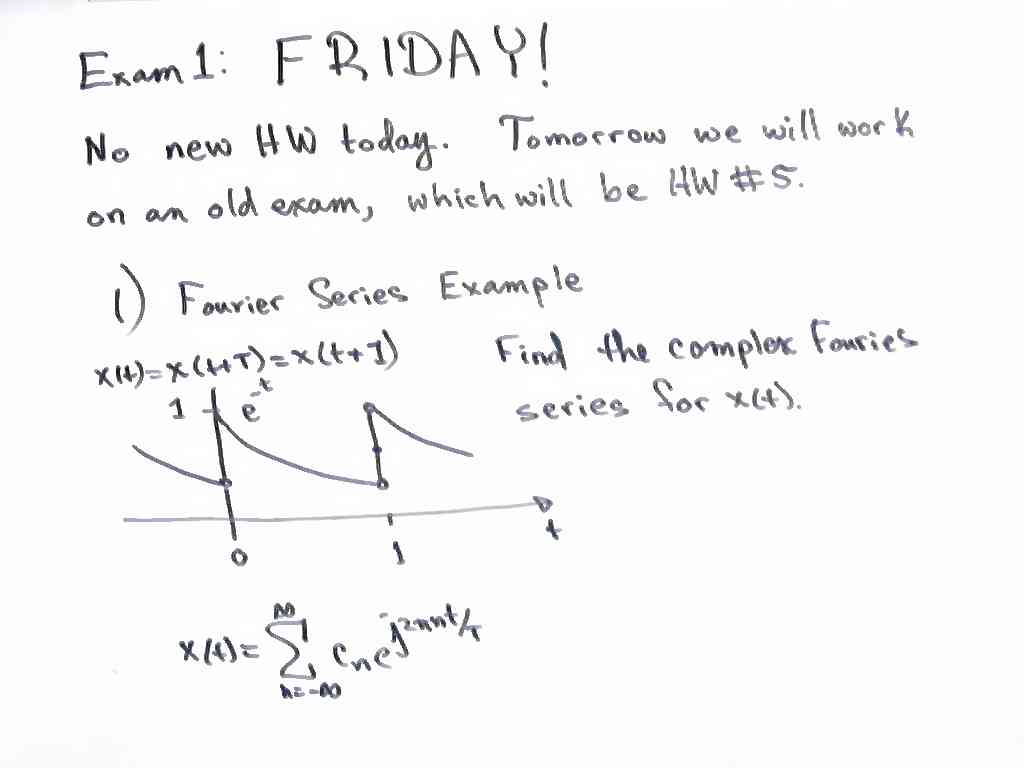 Exam 1: FRIDAY!
No new HW today. Tomorrow we will work
on an old exam, which will be HW #5.
1) Fourier Series Example
x(t)=x(t+T)=x(t+1)
Find the complex Fouries
series for x(t).
1 e^-t
0
1
t
x(t)= ∑ n=-∞ ∞ cₙe^j2πnt/T